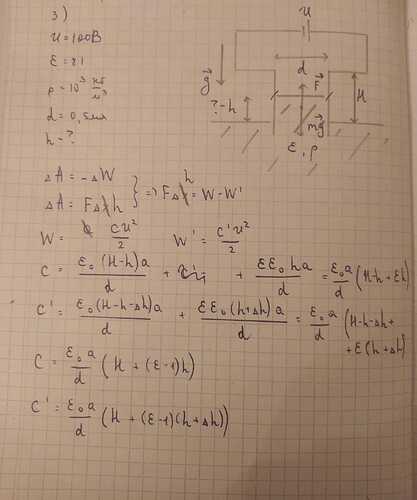 3)
U=100В
ε=81
ρ=10³ кг/м³
d=0,5мм
h-?
U
d
F⃗
g⃗
?-h
H
mg⃗
ε,ρ
ΔA = -ΔW
ΔA = FΔh } => FΔh = W-W'
W = CU²/2 W' = C'U²/2
C = ε₀(H-h)a/d + εε₀ha/d = ε₀a/d (H-h+εh)
C' = ε₀(H-h-Δh)a/d + εε₀(h+Δh)a/d = ε₀a/d (H-h-Δh+
+ε(h+Δh))
C = ε₀a/d (H+(ε-1)h)
C' = ε₀a/d (H+(ε-1)(h+Δh))